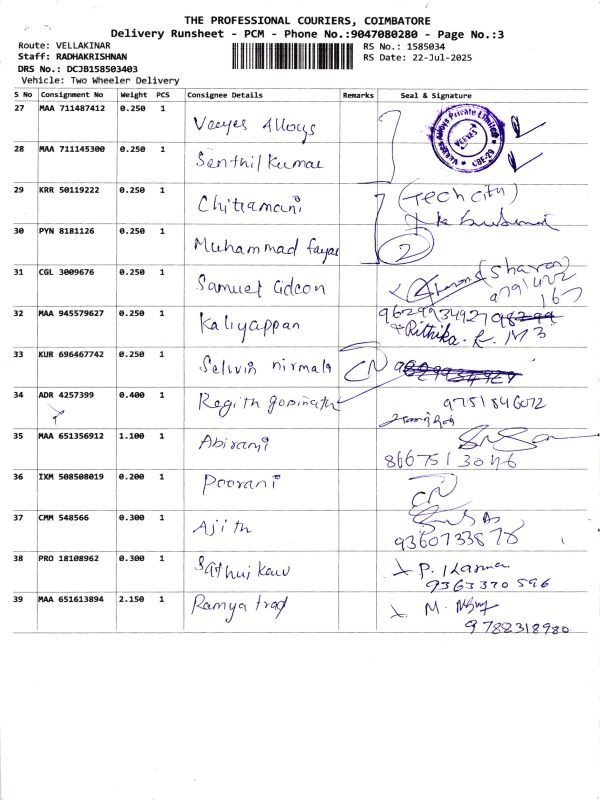 THE PROFESSIONAL COURIERS, COIMBATORE
Delivery Runsheet - PCM - Phone No.:9047080280 - Page No.:3
Route: VELLAKINAR
RS No.: 1585034
Staff: RADHAKRISHNAN
RS Date: 22-Jul-2025
DRS No.: DCJB158503403
Vehicle: Two Wheeler Delivery
S No Consignment No Weight PCS Consignee Details Remarks Seal & Signature
27 MAA 711487412 0.250 1 Veeyes Alloys
Veeyes Alloys Private Limited
VEEYES
CBE-29
28 MAA 711145300 0.250 1 Senthil Kumar
29 KRR 50119222 0.250 1 Chitramani (Tech city)
30 PYN 8181126 0.250 1 Muhammad fayas 2
31 CGL 3009676 0.250 1 Samuel Gideon (Sharon)
9791422
167
32 MAA 945579627 0.250 1 Kaliyappan 9629934927
Rithika. R.
33 KUR 696467742 0.250 1 Selvin nirmala CN
34 ADR 4257399 0.400 1 Regith gopinath 9751846072
35 MAA 651356912 1.100 1 Abirami
8667513046
36 IXM 508508019 0.200 1 Poorani CN
37 CMM 548566 0.300 1 Ajith
9360733878
38 PRO 18108962 0.300 1
9363370596
39 MAA 651613894 2.150 1 Ramya trad M.
9788318980